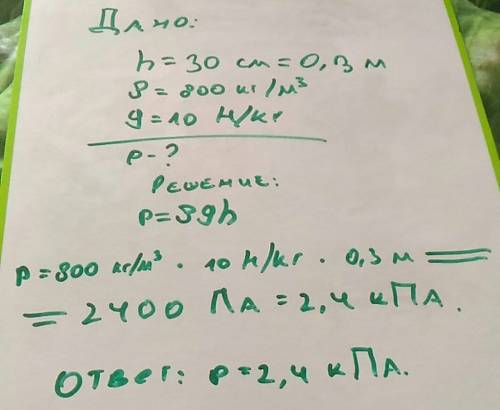 Дано:
h = 30 см = 0,3 м
ρ = 800 кг/м³
g = 10 Н/кг
P - ?
Решение:
P = ρgh
P = 800 кг/м³ · 10 Н/кг · 0,3 м =
= 2400 ПА = 2,4 кПА.
Ответ: P = 2,4 кПА.